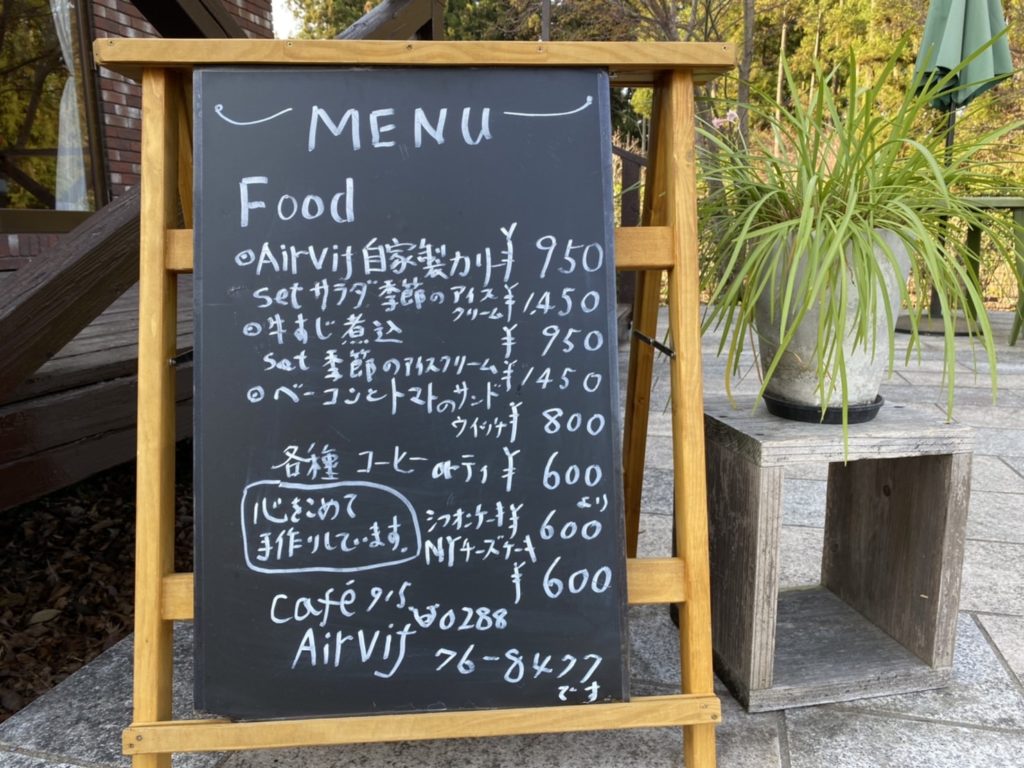 MENU
Food
◎Airvif自家製カリー¥950
setサラダ季節のアイスクリーム¥1,450
◎牛すじ煮込 ¥950
set季節のアイスクリーム¥1450
◎ベーコンとトマトのサンド
ウイッチ¥800
各種コーヒーorティ¥600
より
心をこめて
手作りしています。
シフォンケーキ¥600
NYチーズケーキ
¥600
café
Airvif
☎0288
76-8477
です